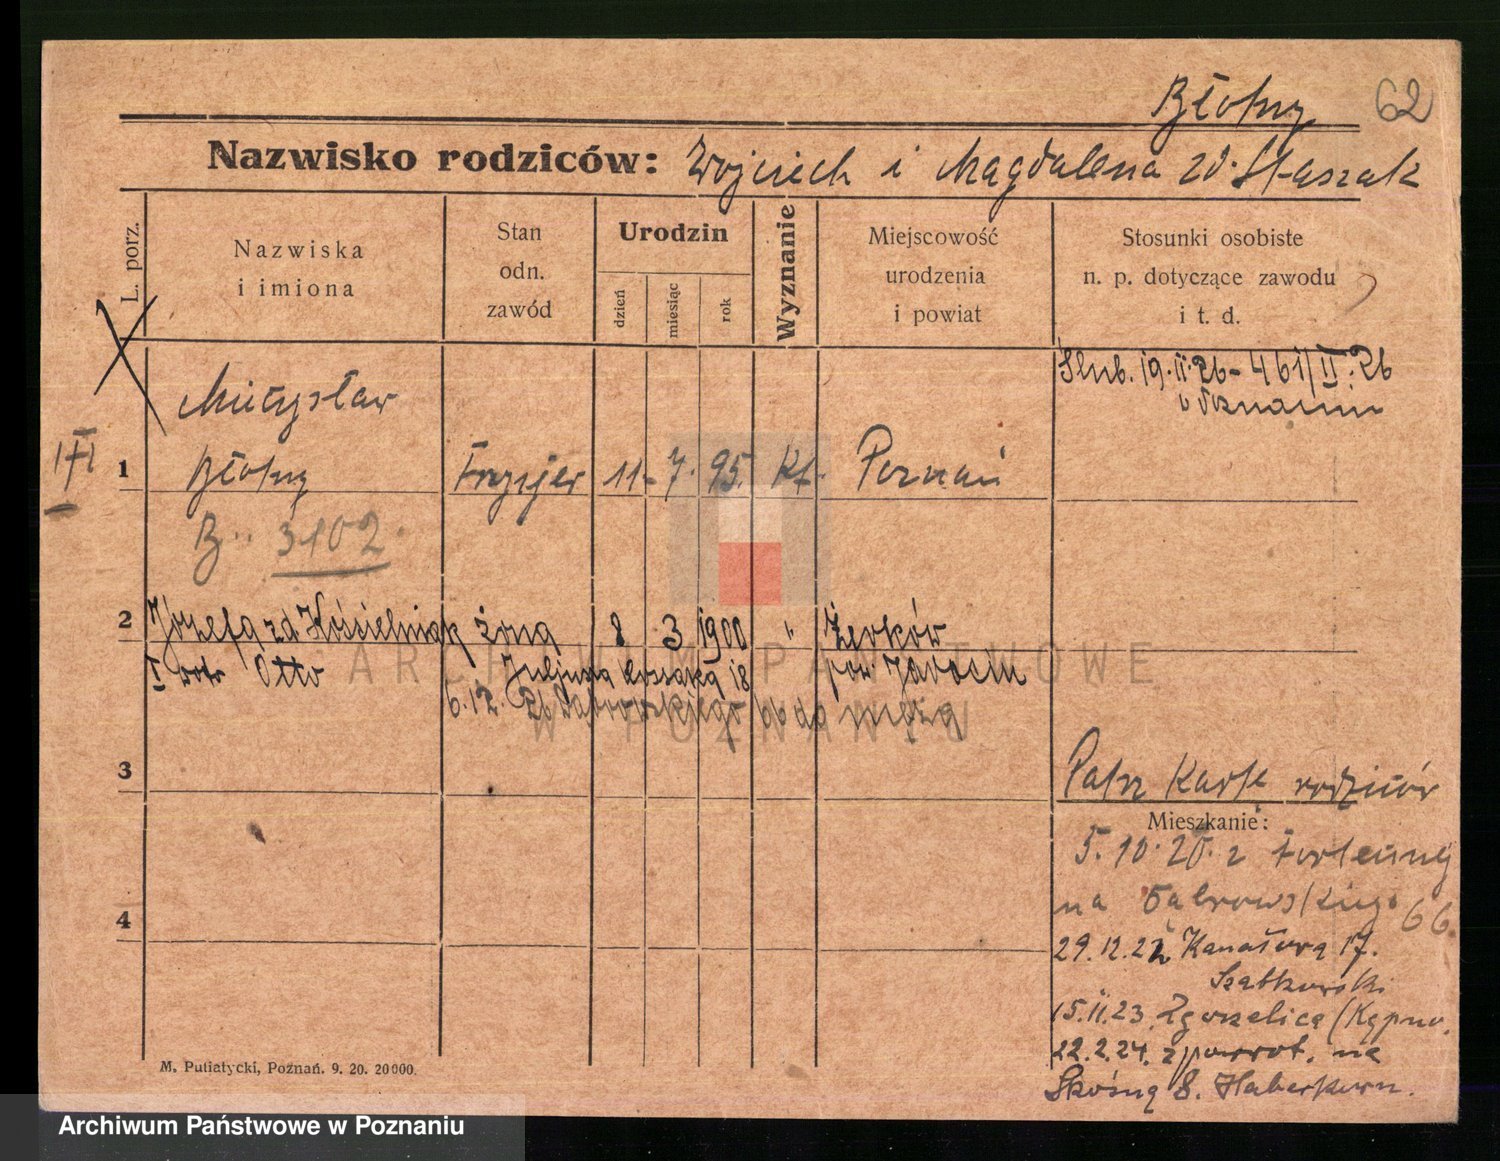 Błotny 62
Nazwisko rodziców: Wojciech i Magdalena zd. Staszak
L. porz.
Nazwiska
i imiona
Stan
odn.
zawód
Urodzin
dzień
miesiąc
rok
Wyznanie
Miejscowość
urodzenia
i powiat
Stosunki osobiste
n. p. dotyczące zawodu
i t. d.
Ślub. 19.II.26 - 461/II.26
w Poznaniu
Mieczysław
1 Błotny Fryzjer 11. 7. 95. kt. Poznań
B.. 3102.
2 Józefa zd Kościelniak żona 8 3 1900 " Żerków
Otto Juljusza Kossaka 18 pow. Jarocin
6.12. 26 Dąbrowskiego 66 do męża
3
Patrz Kart. rodziców
Mieszkanie:
5.10.20. z Fortecznej
na Dąbrowskiego 66.
4
29.12.22 Kanałowa 17.
Szatkowski
15.II.23. Zgorzelice (Kępno.
22.2.24. z powrot. na
Skośną 8. Haberkorn.
M. Putiatycki, Poznań. 9. 20. 20000.
ARCHIWUM PAŃSTWOWE
W POZNANIU
Archiwum Państwowe w Poznaniu